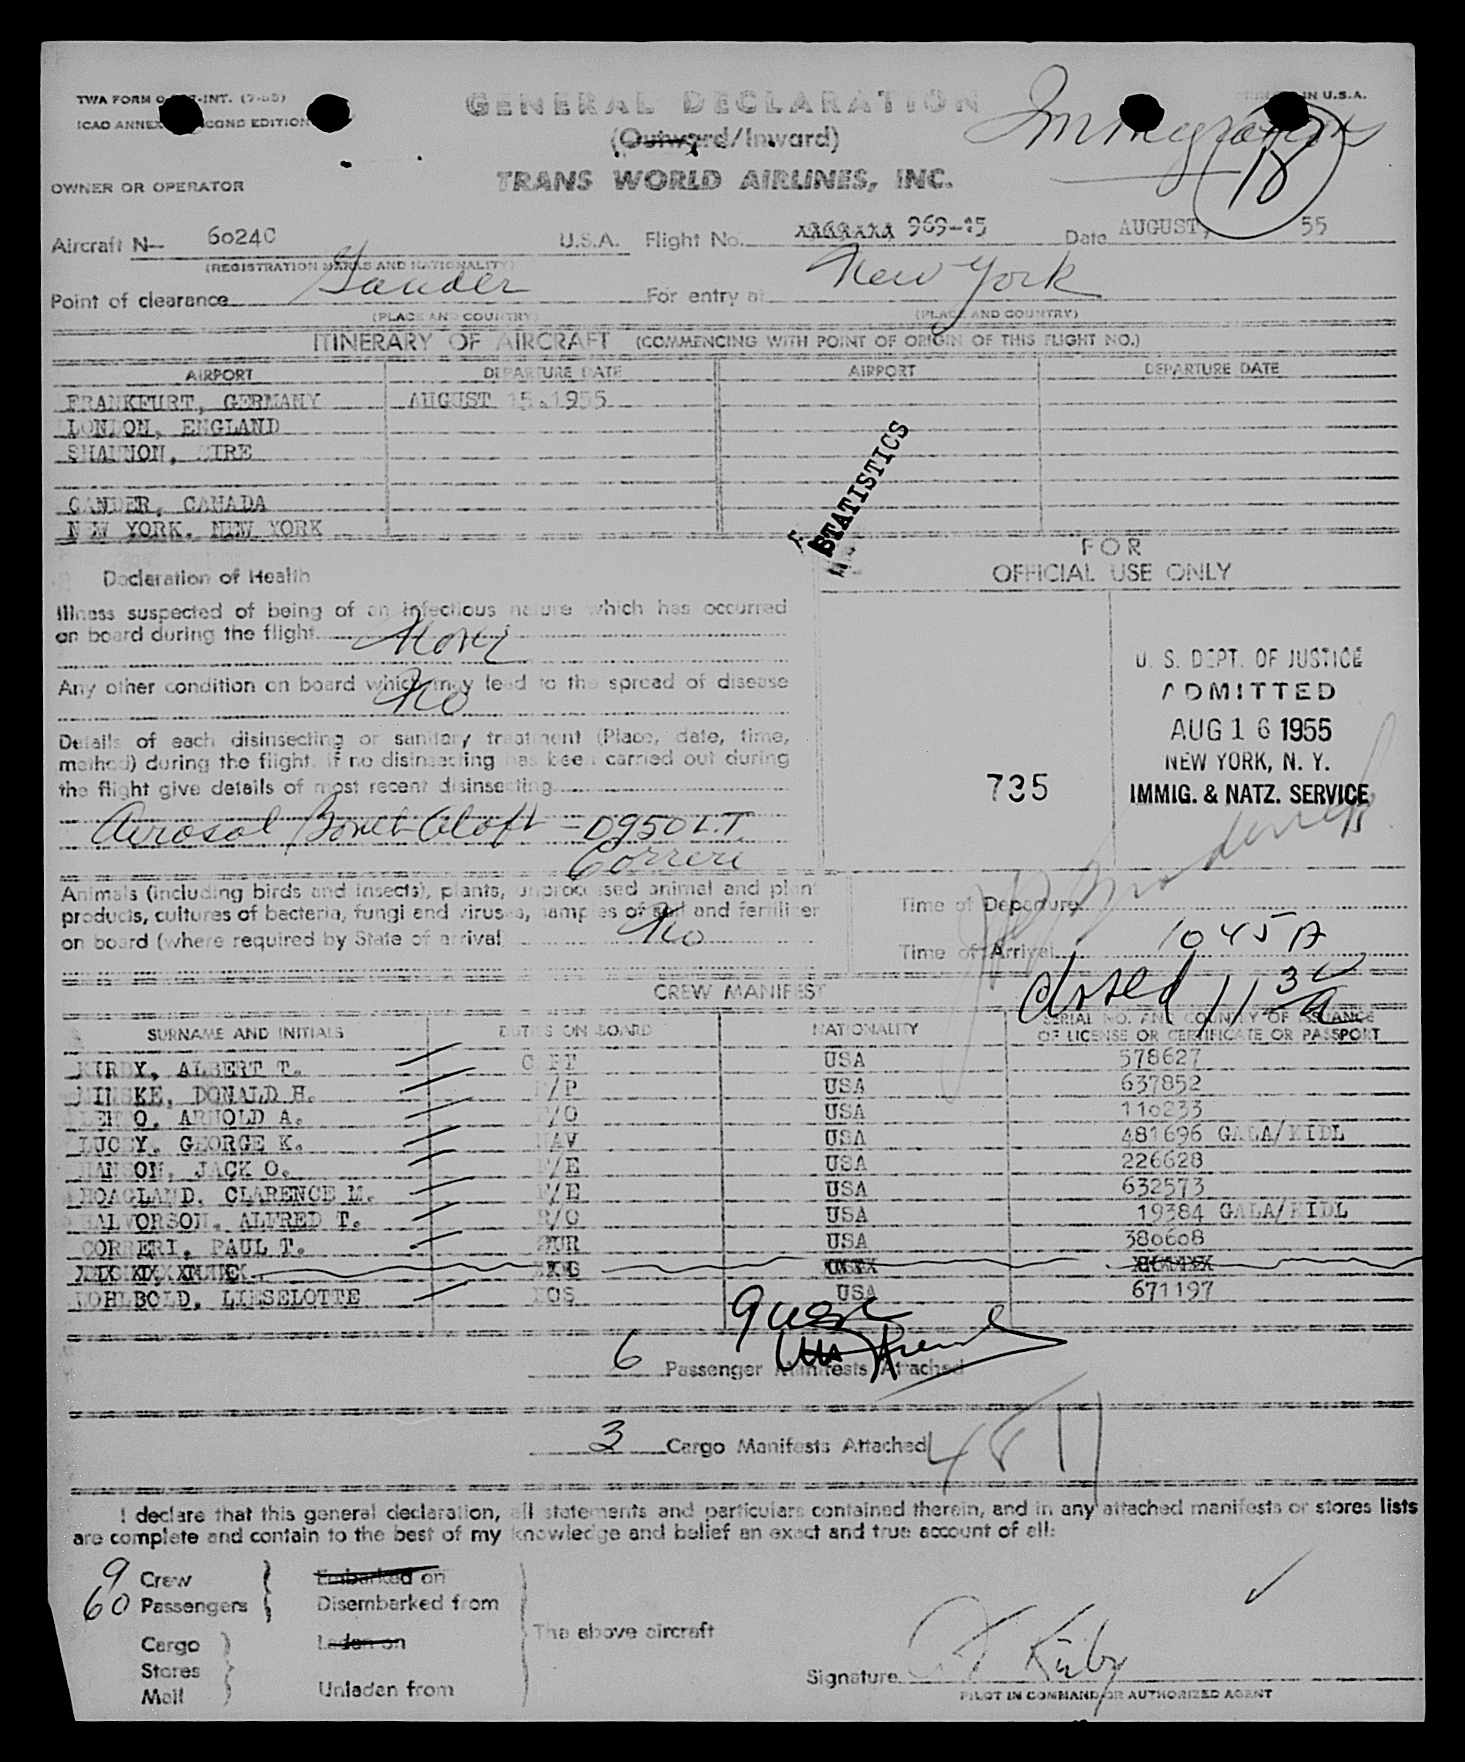 GENERAL DECLARATION
(Outward/Inward)
Immigration
18
PRINTED IN U.S.A.
OWNER OR OPERATOR
TRANS WORLD AIRLINES, INC.
Aircraft N— 6024C U.S.A. Flight No. 969-15 Date AUGUST, 55
(REGISTRATION MARKS AND NATIONALITY)
Point of clearance Gander For entry at New York
(PLACE AND COUNTRY) (PLACE AND COUNTRY)
ITINERARY OF AIRCRAFT (COMMENCING WITH POINT OF ORIGIN OF THIS FLIGHT NO.)
AIRPORT DEPARTURE DATE AIRPORT DEPARTURE DATE
FRANKFURT, GERMANY AUGUST 15.1955
LONDON, ENGLAND
SHANNON, EIRE
GANDER, CANADA
NEW YORK. NEW YORK
STATISTICS
FOR
OFFICIAL USE ONLY
Declaration of Health
Illness suspected of being of an infectious nature which has occurred
on board during the flight None
Any other condition on board which may lead to the spread of disease
No
Details of each disinsecting or sanitary treatment (Place, date, time,
method) during the flight. If no disinsecting has been carried out during
the flight give details of most recent disinsecting
Aerosol Bomb Aloft - 0950 L.T.
Correri
735
U. S. DEPT. OF JUSTICE
ADMITTED
AUG 16 1955
NEW YORK, N. Y.
IMMIG. & NATZ. SERVICE
Animals (including birds and insects), plants, unprocessed animal and plant
products, cultures of bacteria, fungi and viruses, samples of soil and fertilizer
on board (where required by State of arrival) No
Time of Departure
Time of Arrival 1045 A
closed 11 30 a
CREW MANIFEST
SURNAME AND INITIALS DUTIES ON BOARD NATIONALITY SERIAL NO. AND COUNTY OF ISSUANCE
OF LICENSE OR CERTIFICATE OR PASSPORT
KIRBY, ALBERT T. CAPT USA 578627
MINSKE, DONALD H. F/P USA 637852
ARNOLD A. F/O USA 110233
LUCEY, GEORGE K. NAV USA 481696 GALA/KIDL
HANSON, JACK O. F/E USA 226628
HOAGLAND, CLARENCE M. F/E USA 632573
HALVORSON, ALFRED T. R/O USA 19384 GALA/KIDL
CORRERI, PAUL T. PUR USA 380608
WOHLBOLD, LIESELOTTE HOS USA 671197
6 Passenger Manifests Attached
3 Cargo Manifests Attached
I declare that this general declaration, all statements and particulars contained therein, and in any attached manifests or stores lists
are complete and contain to the best of my knowledge and belief an exact and true account of all:
9 Crew Embarked on
60 Passengers Disembarked from
The above aircraft
Cargo Laden on
Stores
Mail Unladen from
Signature A T Kirby
PILOT IN COMMAND OR AUTHORIZED AGENT